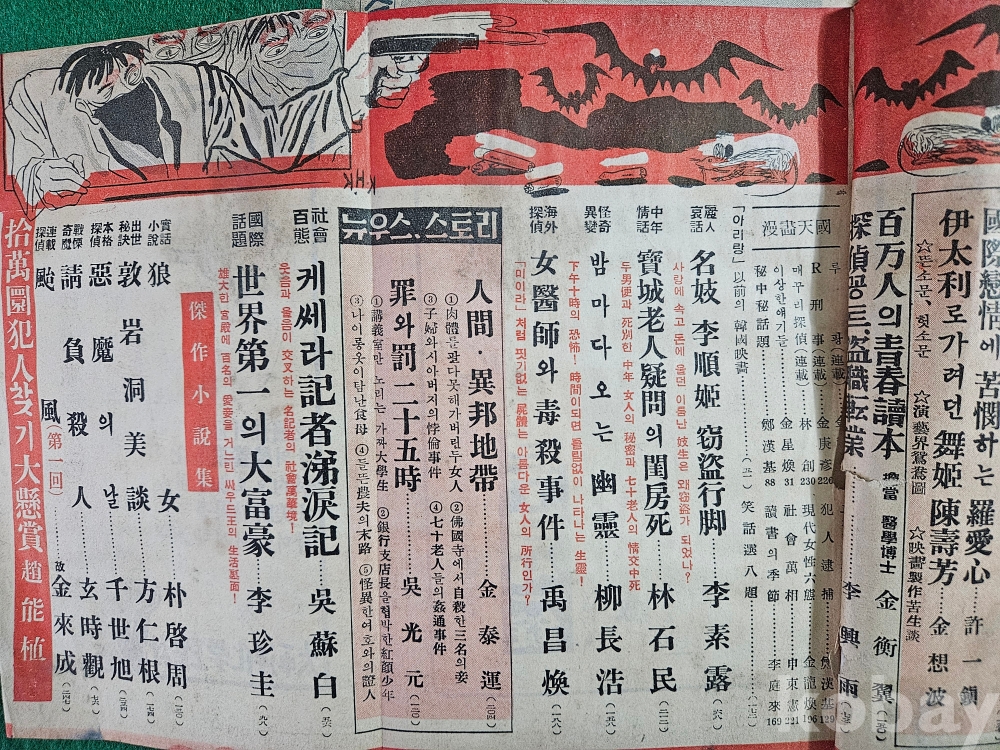 國際戀情에 苦憫하는 羅愛心…許一鎖
伊太利로가려던 舞姬 陳壽芳…金想波
☆뜬소문、헛소문 ☆演藝界鴛鴦圖 ☆映畵製作苦生談
百万人의 靑春讀本 擔當 醫學博士 金衡翼
李興雨
國天盡漫
R 刑事(連載)…金彦 226
매꾸리探偵(連載)…林創 230
이상한얘기들…金星煥 31
秘中秘話題…鄭漢基 88
犯人逮捕
現代女性六態…金龍煥 196
社會萬相…申東憲 221
讀書의季節…李庭來 169
「아리랑」以前의 韓國映畵
笑話選八題
麗人哀話
名妓 李順姬 窃盜行脚…李素露
사랑에 속고 돈에 울던 이름난 妓生은 왜 窃盜가 되었나?
中年情話
寶城老人疑問의 閨房死…林石民
두 男便과 死別한 中年 女人의 秘密과 七十老人의 情交中死
怪奇異變
밤마다오는 幽靈…柳長浩
下午十時의 恐怖! 時間이되면 틀림없이 나타나는 生靈!
海外探偵
女醫師와 毒殺事件…禹昌煥
「미이라」처럼 핏기없는 屍體는 아름다운 女人의 所行인가?
뉴우스.스토리
人間·異邦地帶…金泰運
①肉體를팔다못해가버린두女人 ②佛國寺에서自殺한三名의妾
③子婦와시아버지의悖倫事件 ④七十老人들의姦通事件
罪와 罰二十五時…吳光元
①講義室만 노리는 가짜大學生 ②銀行支店長을협박한紅顔少年
③나이롱옷이탐난食母 ④들뜬農夫의末路 ⑤怪異한여호와의證人
社會百態
케쎄라記者涕淚記…吳蘇白
웃음과 울음이 交叉하는 名記者의 社會萬華境!
國際話題
世界第一의 大富豪…李珍圭
雄大한 宮殿에 百名의 愛妾을 거느린 싸우드王의 生活裏面!
傑作小說集
實話小說 狼女…朴啓周
出世秘訣 敦岩洞美談…方仁根
本格探偵 惡魔의 날…千世旭
戰慄奇魔 請負殺人…玄時觀
連載探偵 颱風(第一回) 故金來成
拾萬圜犯人찾기大懸賞 趙能植